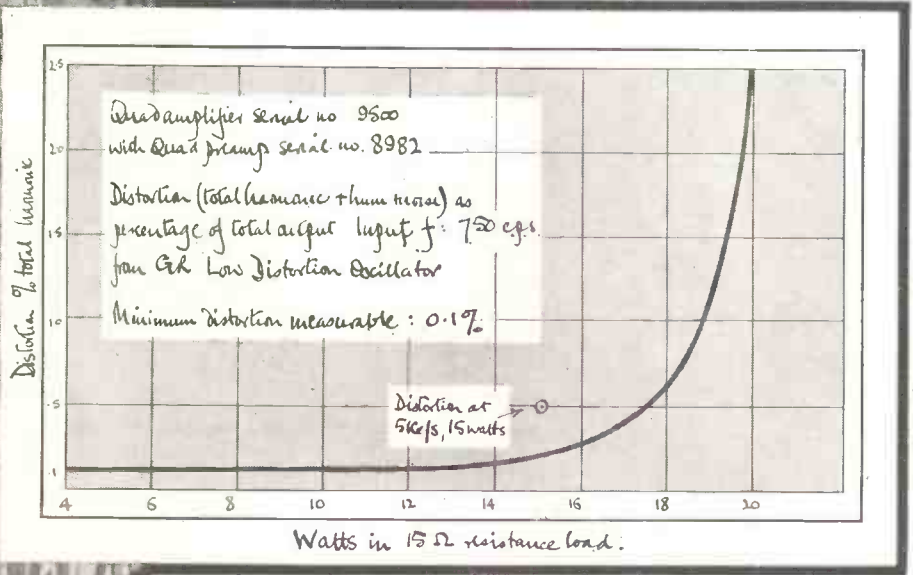 2.5
2.0
1.5
1.0
.5
.1
Distortion % total harmonic
Quad amplifier serial no 9500
with Quad preamp serial no. 8982
Distortion (total harmonic + hum + noise) as
percentage of total output Input f: 750 c.p.s.
from GR Low Distortion Oscillator
Minimum distortion measurable : 0.1%
Distortion at
5Kc/s, 15 watts
4 6 8 10 12 14 16 18 20
Watts in 15 Ω resistance load.